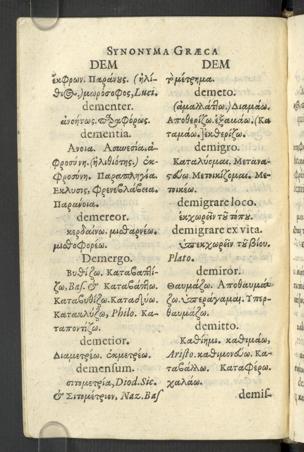 SYNONYMA GRÆCA
DEM
ἔκφρων. Παράνους. (ἠλί-
θιος.) μωρόσοφος, Luci.
dementer.
ἀνοήτως.
dementia.
Ἄνοια. Ἀπονοία. ἀ-
φροσύνη. (ἠλιθιότης.) ἐκ-
φροσύνη. Παραπληγία.
Ἔκλυσις, φρενοβλάβεια.
Παράνοια.
demereor.
κερδαίνω. μισθαρνέω.
μισθοφορέω.
Demergo.
Βυθίζω. Καταβαπτί-
ζω, Bas. & Καταβάπτω.
Καταβυθίζω. Καταδύω.
Κατακλύζω, Philo. Κα-
ταποντίζω.
demetior.
Διαμετρέω. ἐκμετρέω.
demensum.
σιτομετρία, Diod. Sic.
& Σιτομέτριον, Naz. Bas
DEM
τὸ μέτρημα.
demeto.
(ἀμαλλάπτω.) Διαμάω.
Ἀποθερίζω. ἐξαμάω. (Κα-
ταμάω.) ἐκθερίζω.
demigro.
Καταλύομαι. Μετανα-
στεύω. Μετοικίζομαι. Με-
τοικέω.
demigrare loco.
ἐκχωρεῖν τοῦ τόπου.
demigrare ex vita.
ὑπεκχωρεῖν τοῦ βίου.
Plato.
demiror.
Θαυμάζω. Ἀποθαυμά-
ζω. ὑπεράγαμαι. Ὑπερ-
θαυμάζω.
demitto.
Καθίημι. καθιμάω,
Aristo. καθιμονεύω. Κα-
ταβάλλω. Καταφέρω.
χαλάω.
demis-